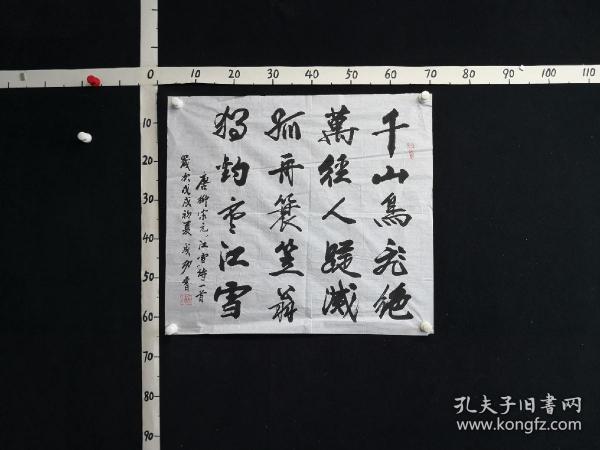 千山鳥飛絕
萬徑人蹤滅
孤舟簑笠翁
獨釣寒江雪
唐柳宗元江雪詩一首
歲次戊戌初夏 書
0 10 20 30 40 50 60 70 80 90 100 110
10
20
30
40
50
60
70
80
90
孔夫子旧书网
www.kongfz.com